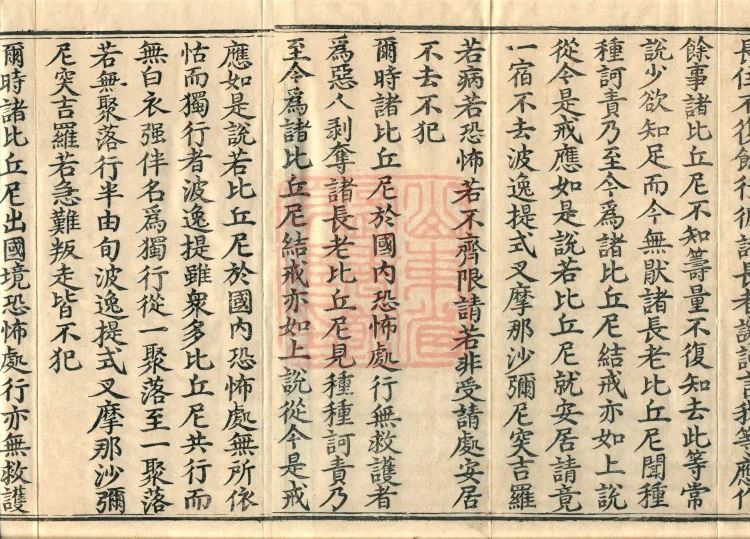 餘事諸比丘尼不知籌量不復知去此等常
說少欲知足而今無猒諸長老比丘尼聞種
種訶責乃至今為諸比丘尼結戒亦如上說
從今是戒應如是說若比丘尼就安居請竟
一宿不去波逸提式叉摩那沙彌尼突吉羅
若病若恐怖若不齊限請若非受請處安居
不去不犯
爾時諸比丘尼於國內恐怖處行無救護者
為惡人剥奪諸長老比丘尼見種種訶責乃
至今為諸比丘尼結戒亦如上說從今是戒
應如是說若比丘尼於國內恐怖處無所依
怙而獨行者波逸提雖衆多比丘尼共行而
無白衣强伴名為獨行從一聚落至一聚落
若無聚落行半由旬波逸提式叉摩那沙彌
尼突吉羅若急難叛走皆不犯
爾時諸比丘尼出國境恐怖處行亦無救護